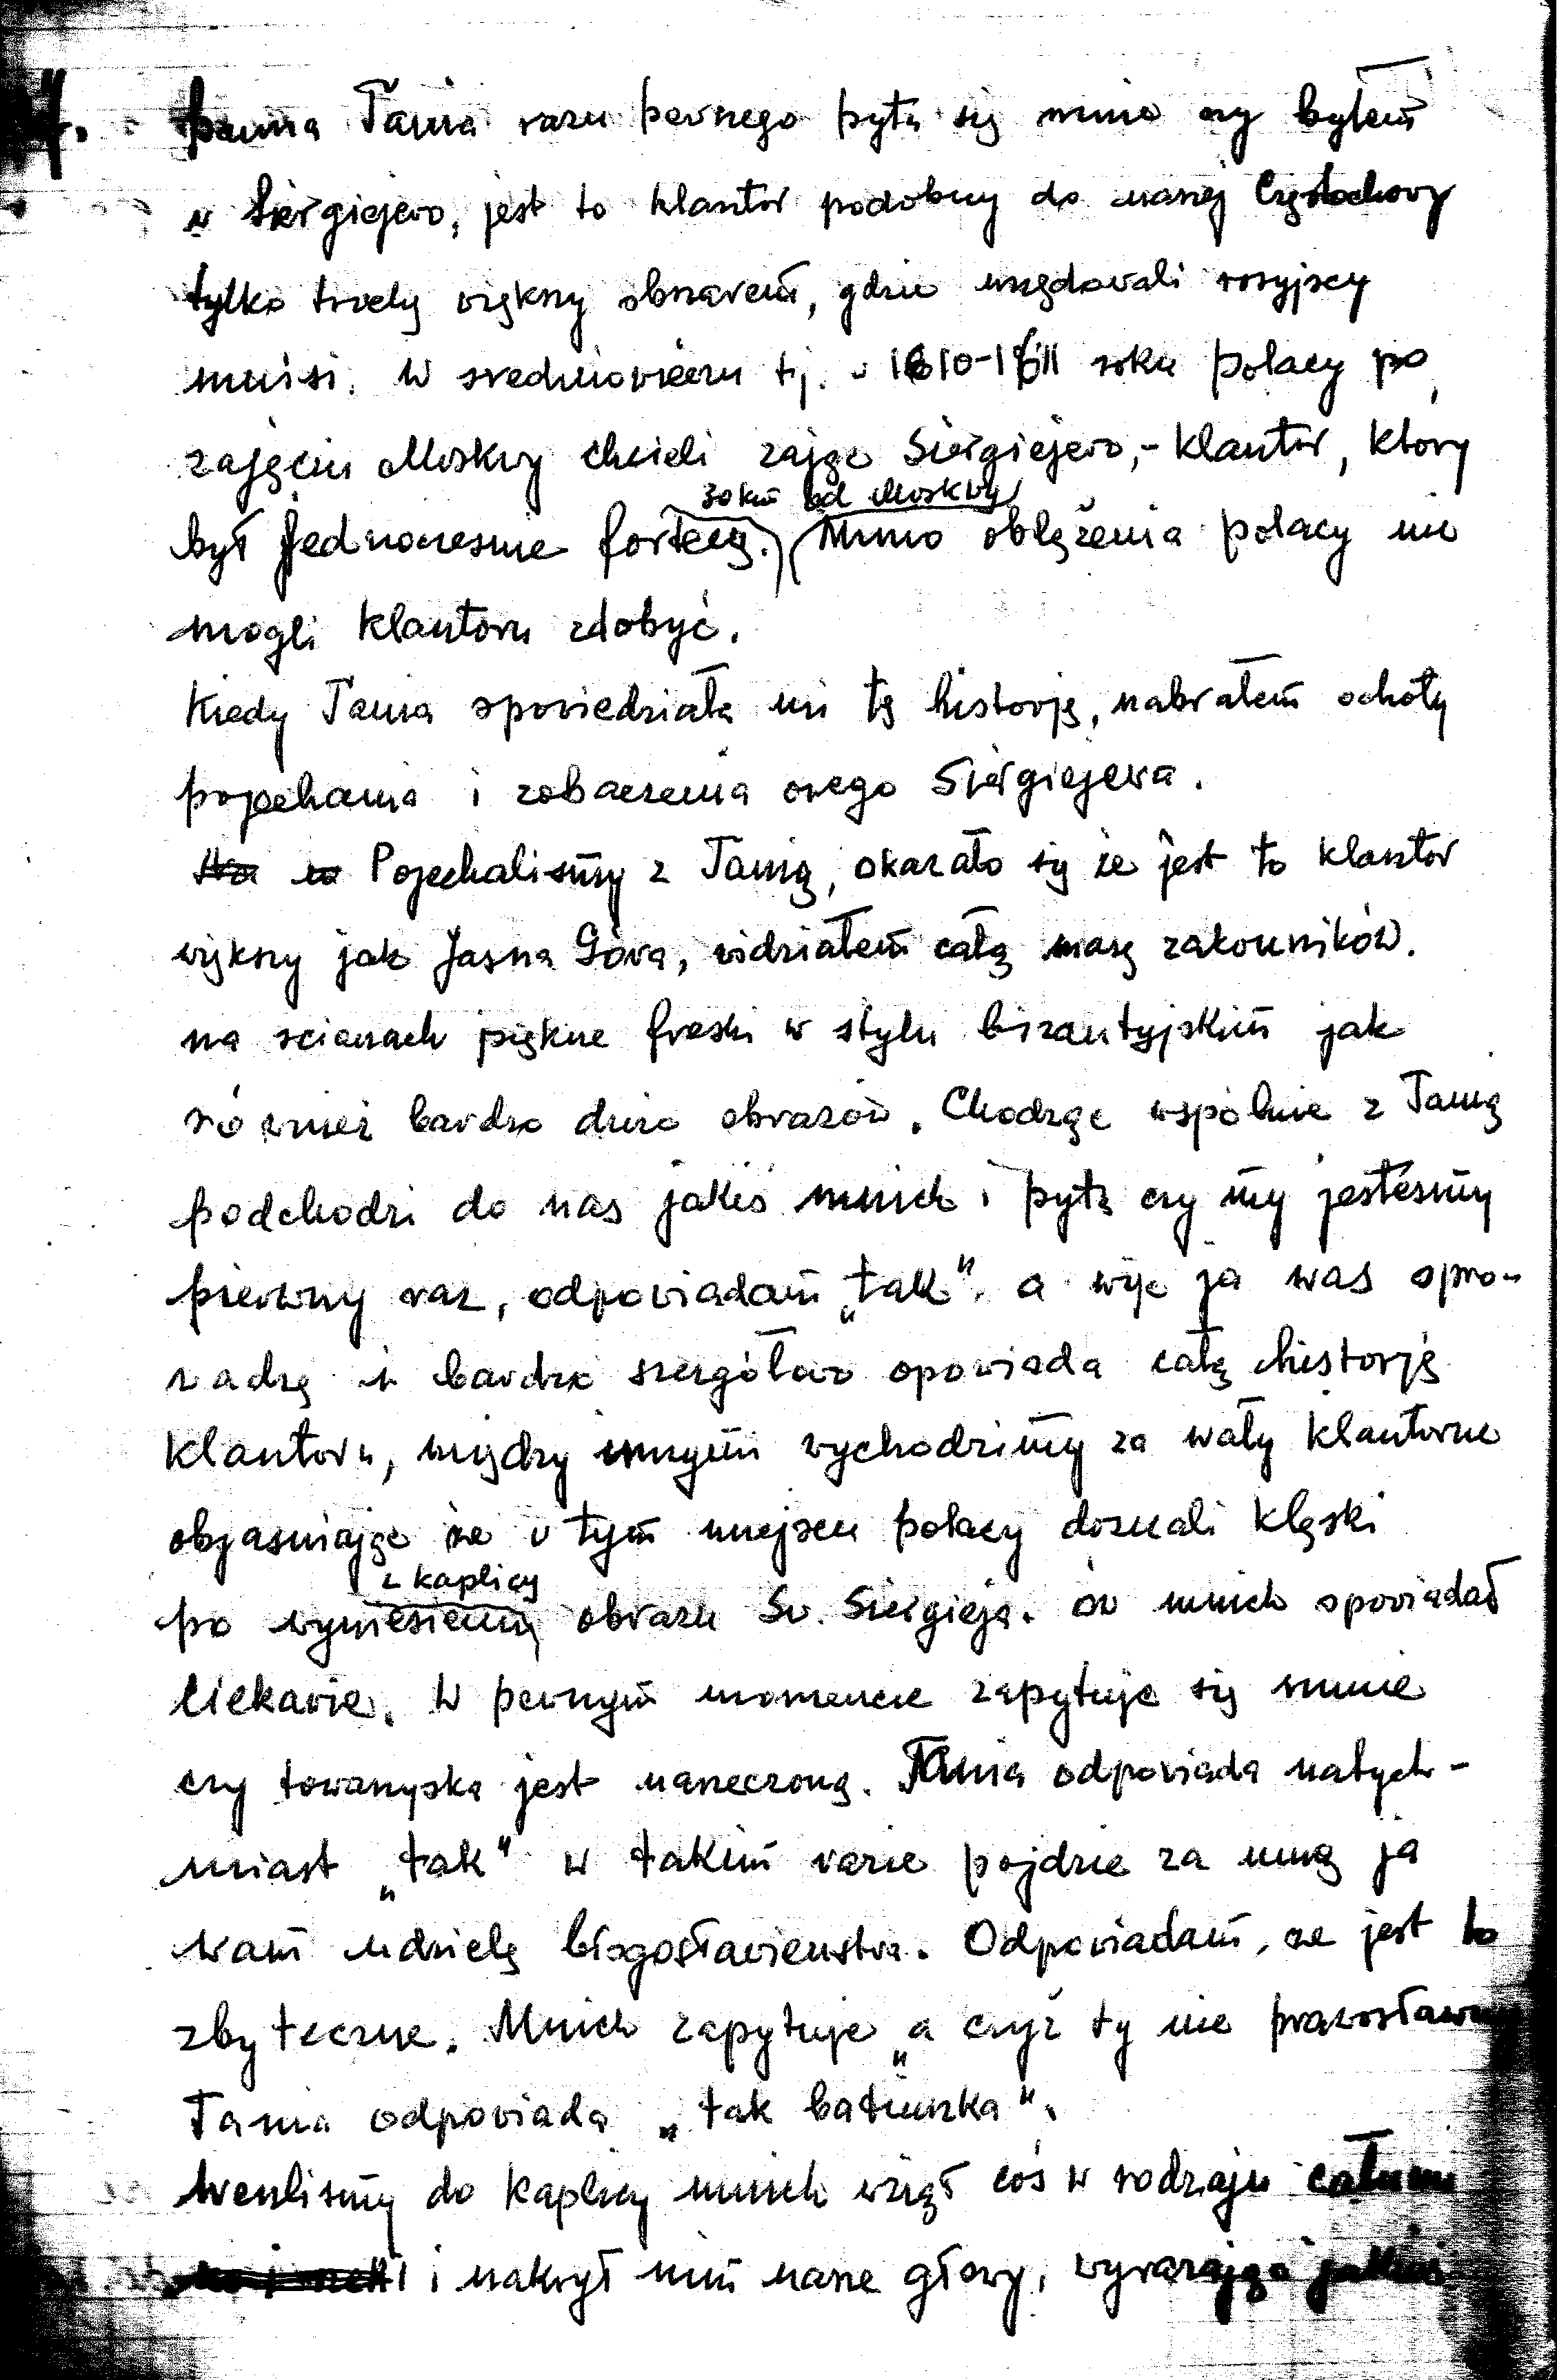 panna Tania razu pewnego pyta się mnie czy byłem
w Siergiejewo, jest to klasztor podobny do naszej Częstochowy
tylko trzely większy obszarem, gdzie urzędowali rosyjscy
mnisi. W sredniowieczu tj. w 1610-1611 roku polacy po
zajęciu Moskwy chcieli zająć Siergiejewo,- klasztor, który
30 km od Moskwy
był jednoczesnie fortecą. Mimo oblężenia polacy nie
mogli klasztoru zdobyć.
Kiedy Tania opowiedziała mi tę historję, nabrałem ochoty
pojechania i zobaczenia owego Siergiejewa.
Pojechalismy z Tanią, okazało się że jest to klasztor
większy jak Jasna Góra, widziałem całą masę zakonników.
na scianach piękne freski w stylu bizantyjskim jak
również bardzo dużo obrazów. Chodząc wspólnie z Tanią
podchodzi do nas jakiś mnich i pyta czy my jesteśmy
pierwszy raz, odpowiadam „tak". a więc ja was opro-
wadzę i bardzo szczgółowo opowiada całą historję
klasztoru, między innymi wychodzimy za wały klasztorne
objasniając że w tym miejscu polacy doznali klęski
z kaplicy
po wyniesieniu obrazu Sw. Siergieja. ów mnich opowiadał
ciekawie. W pewnym momencie zapytuje się mnie
czy towarzyszka jest narzeczoną. Tania odpowiada natych-
miast „tak" w takim razie pójdzie za mną ja
wam udzielę błogosławienstwa. Odpowiadam, że jest to
zbyteczne. Mnich zapytuje „a czyż ty nie prawosławny
Tania odpowiada „tak batiuszka".
Weszlismy do kaplicy mnich wziął coś w rodzaju całunu
i nakrył nim nasze głowy, wyrażając jakieś